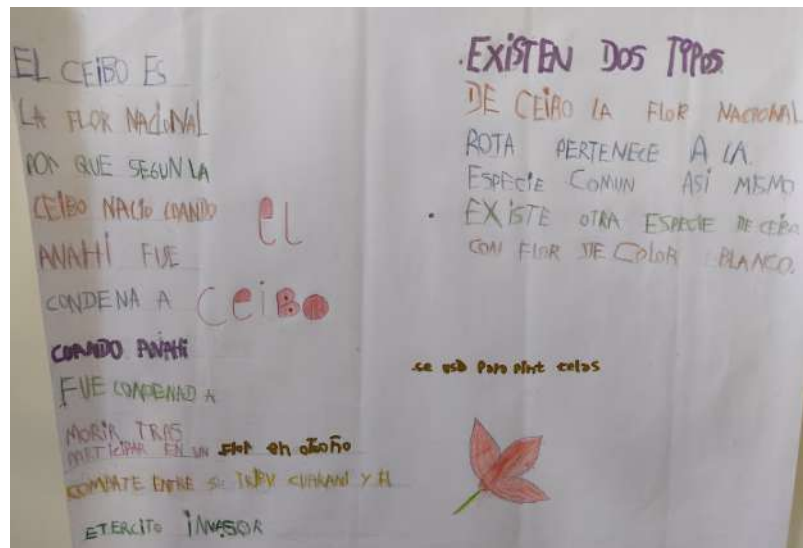 EL CEIBO ES
LA FLOR NACIONAL
POR QUE SEGUN LA
CEIBO NACIO CUANDO
ANAHÍ FUE
CONDENA A
CUANDO ANAHI
FUE CONDENAD A
MORIR TRAS
PARTICIPAR EN UN FloR en otoño
COMBATE ENTRE SU TRIBU GUARANI Y EL
ETERCITO INVASOR
EL
CEIBO
.EXISTEN DOS TIPOS
DE CEIBO LA FLOR NACIONAL
ROTA PERTENECE A LA
ESPECIE COMUN ASI MISMO
. EXISTE OTRA ESPECIE DE CEIBO
CON FLOR DE COLOR BLANCO.
se usa Para telas